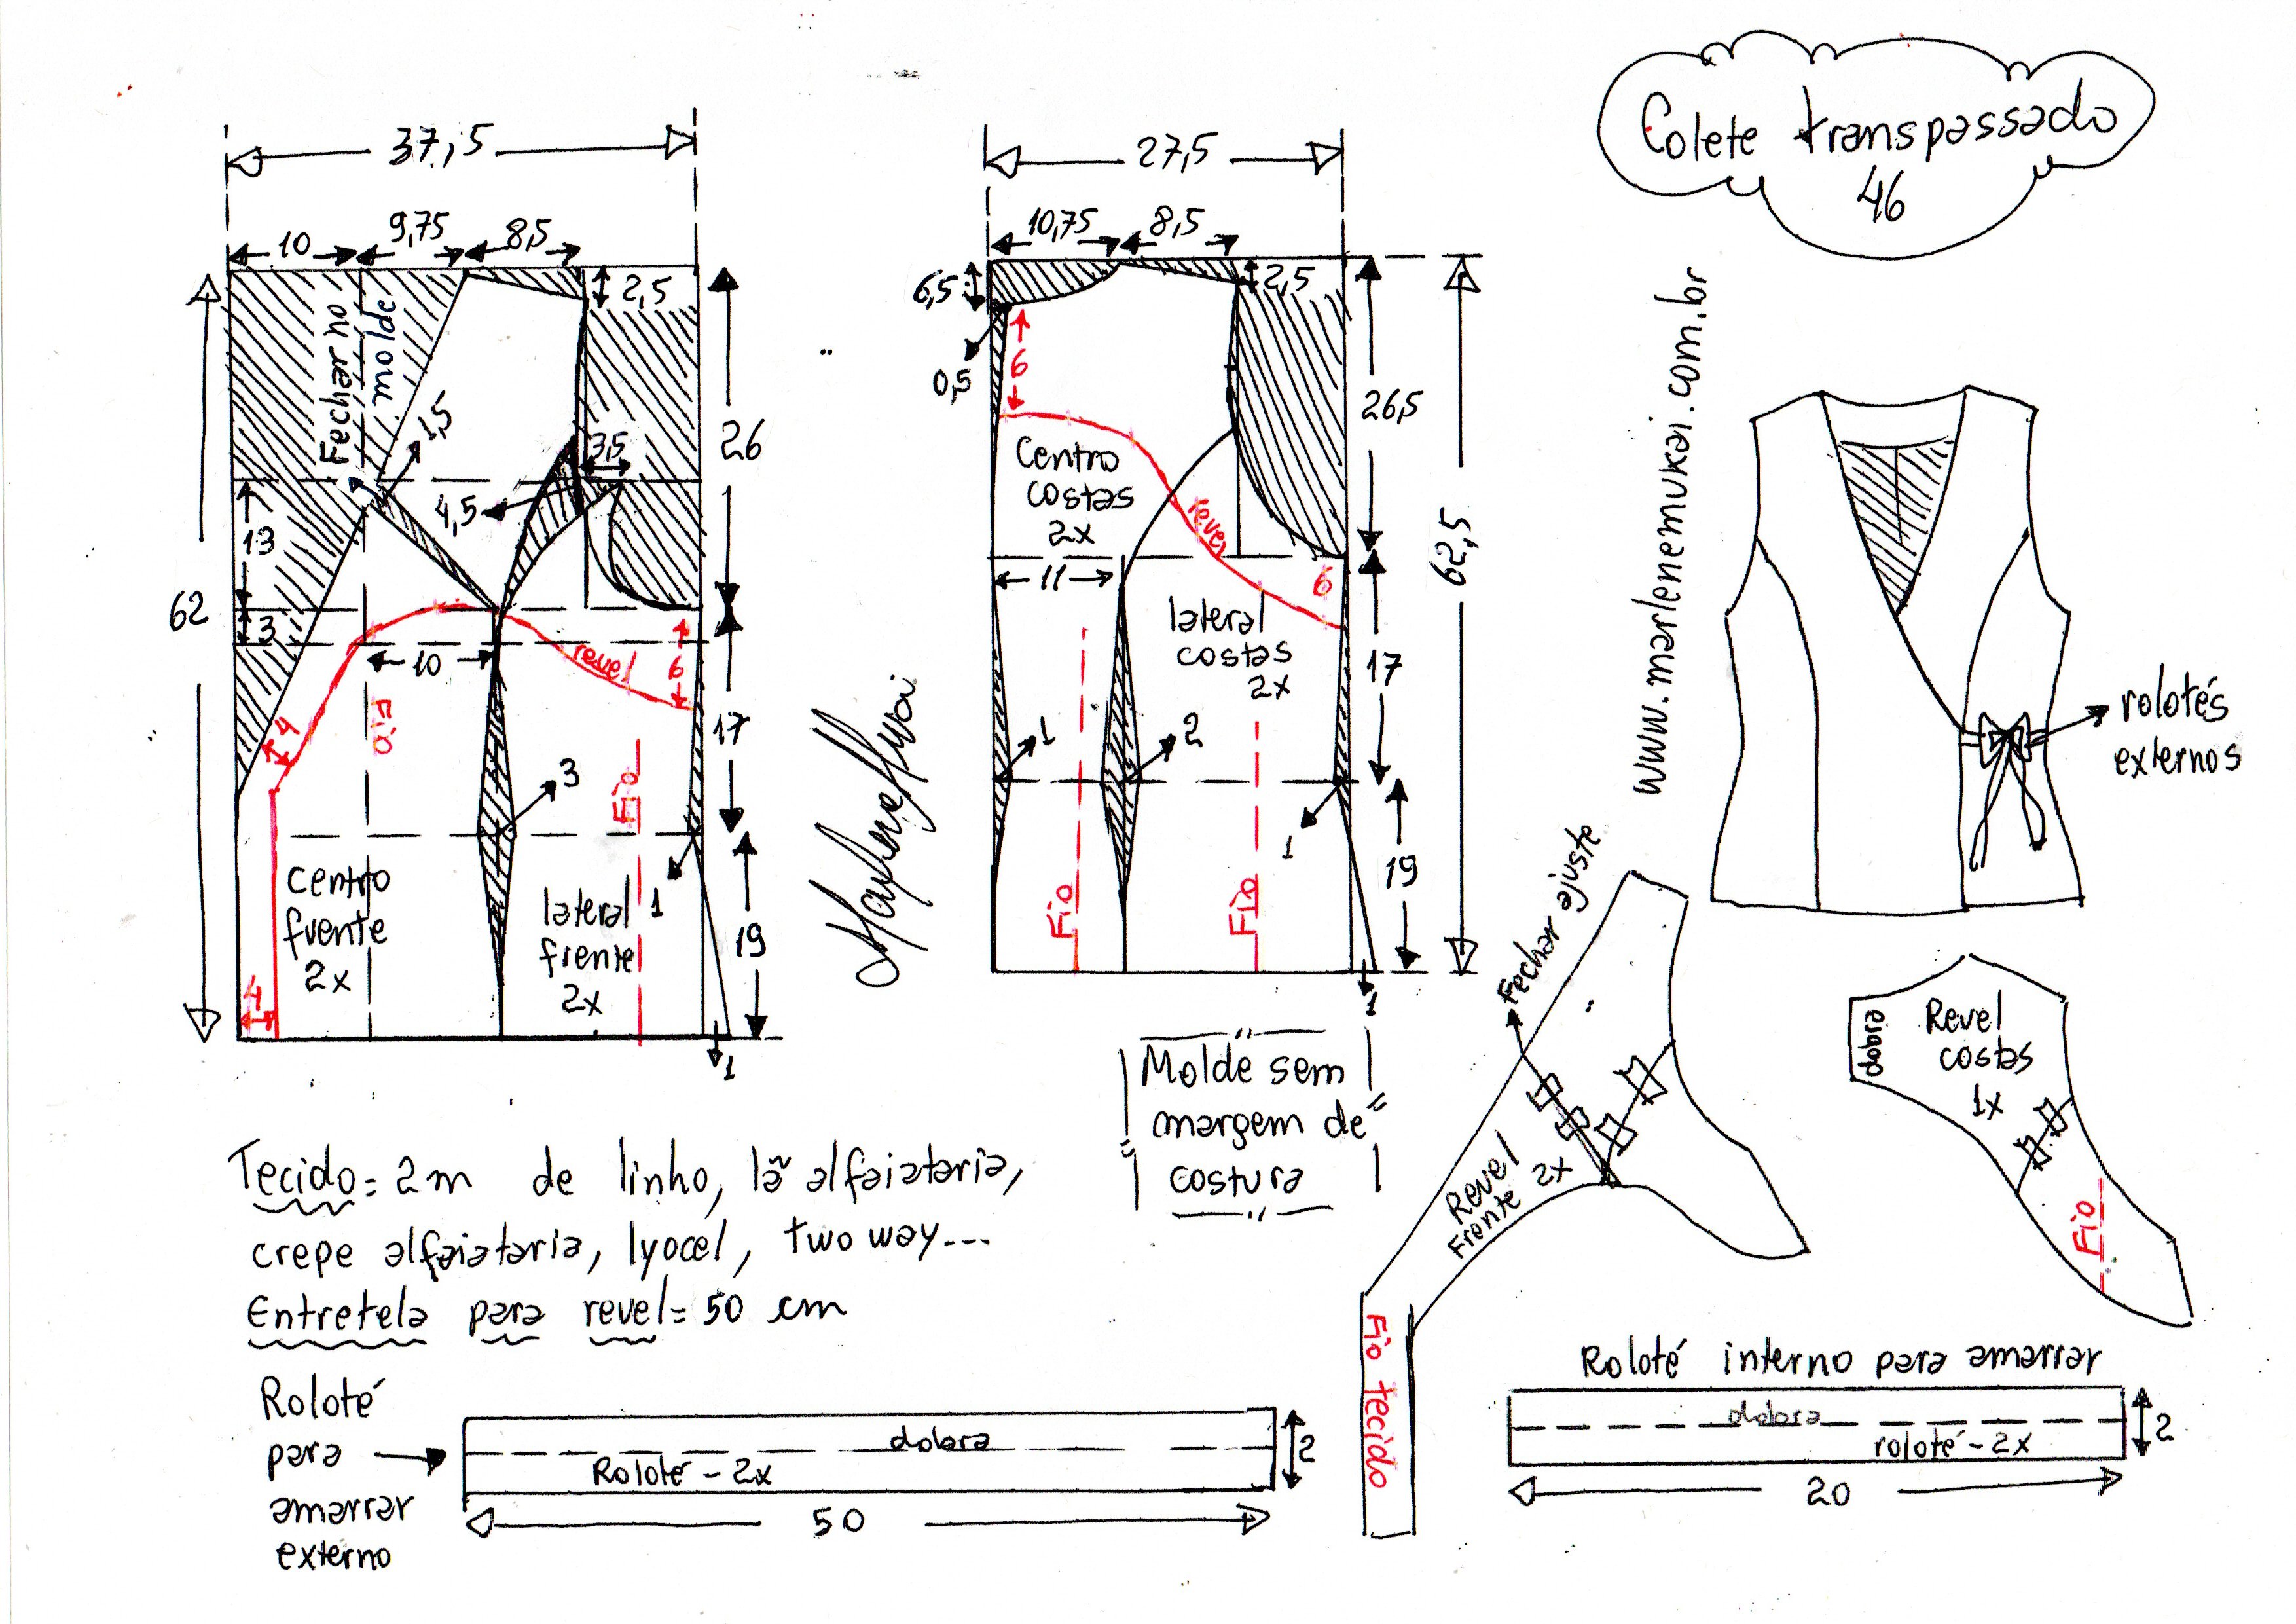 Colete transpassado
46
www.marlenemukai.com.br
37,5
10
9,75
8,5
2,5
Fechar no
molde
1,5
3,5
4,5
26
13
3
62
10
revel
6
4
Fio
17
3
Fio
1
centro
frente
2x
lateral
frente
2x
19
4
1
27,5
10,75
8,5
6,5
2,5
0,5
6
26,5
Centro
costas
2x
revel
11
6
62,5
lateral
costas
2x
17
1
2
1
Fio
Fio
19
1
Marlene Mukai
rolotés
externos
Fechar ajuste
Revel
Frente 2x
Fio tecido
Revel
costas
1x
dobra
Fio
Molde sem
margem de
costura
Tecido = 2m de linho, lã alfaiataria,
crepe alfaiataria, lyocel, two way...
Entretela para revel = 50 cm
Roloté
para
amarrar
externo
dobra
Roloté - 2x
2
50
Roloté interno para amarrar
dobra
roloté - 2x
2
20